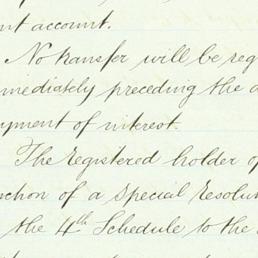 nt account.
No transfer will be reg
mediately preceding the d
yment of interest.
The registered holder of
nction of a Special Resolut
the 4th Schedule to the